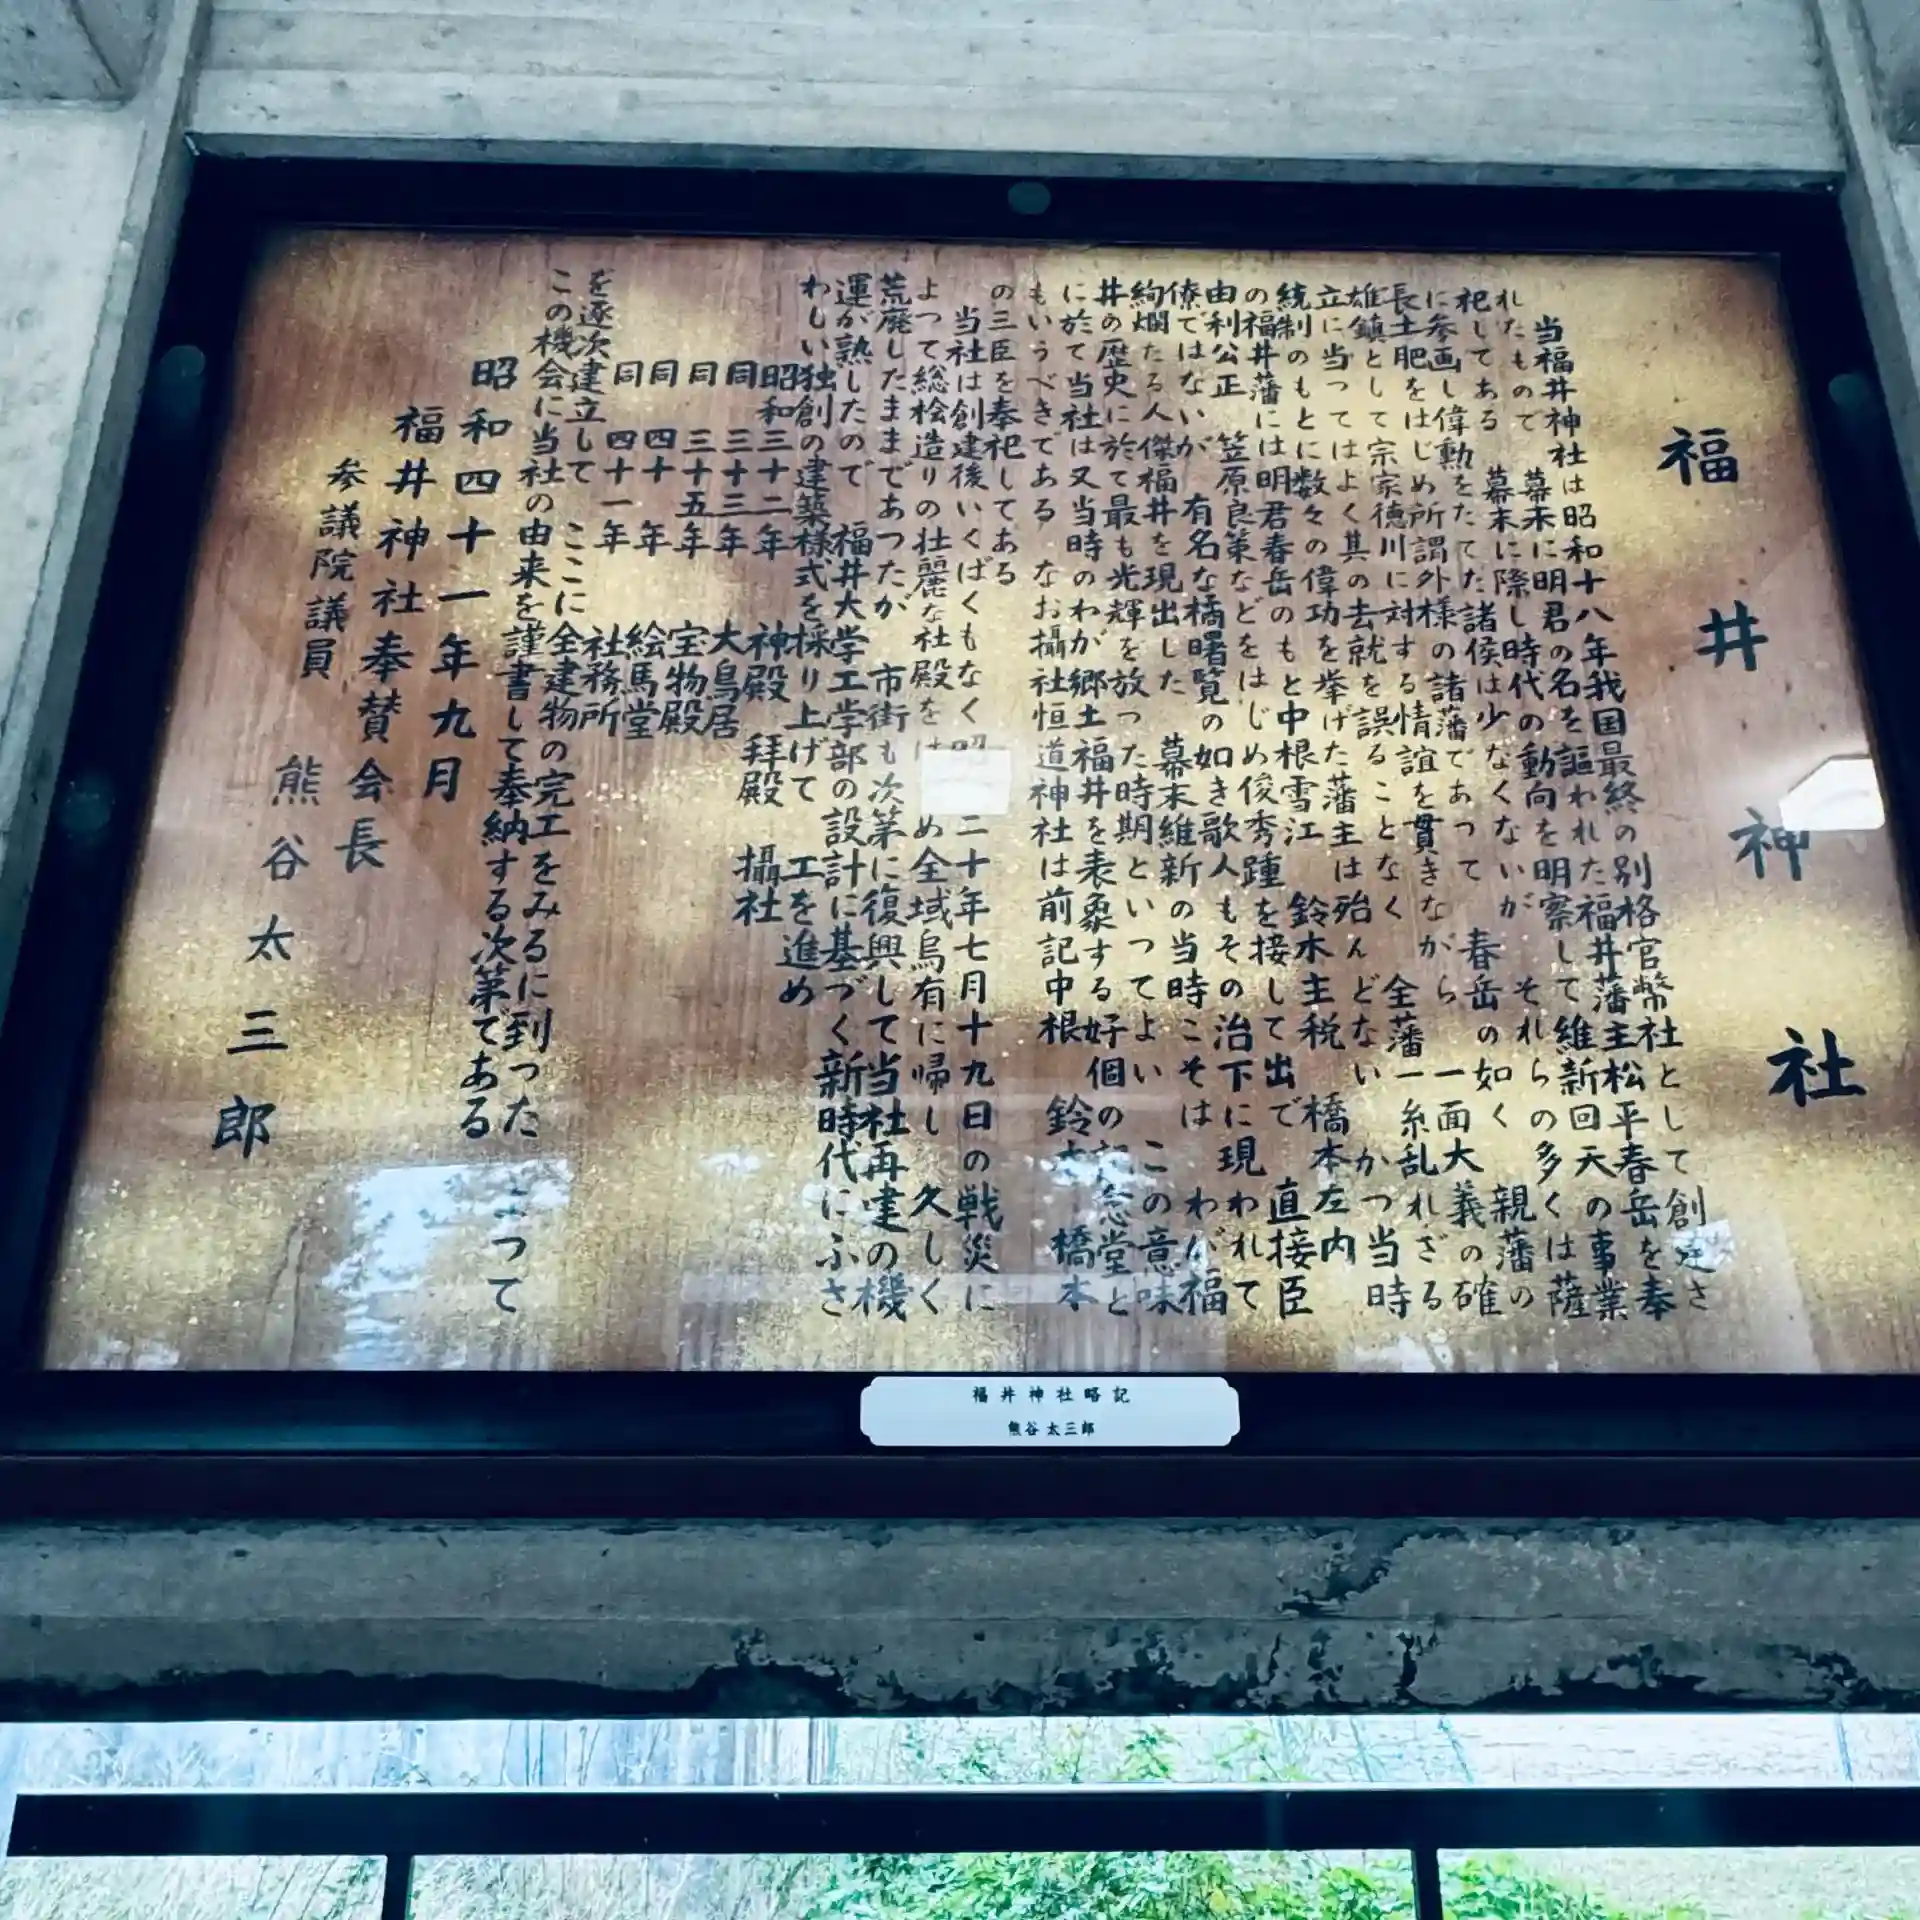 福井神社
当福井神社は昭和十八年我国最終の別格官幣社として創建さ
れたもので 幕末に明君の名を謳われた福井藩主松平春岳を奉
祀してある 幕末に際し時代の動向を明察して維新回天の事業
に参画し偉勲をたてた諸侯は少なくないが それらの多くは薩
長土肥をはじめ所謂外様の諸藩であって 春岳の如く 親藩の
雄鎮として宗家徳川に対する情誼を貫きながら 一面大義の確
立に当ってはよく其の去就を誤ることなく 全藩一糸乱れざる
統制のもとに数々の偉功を挙げた藩主は殆んどない かつ当時
の福井藩には明君春岳のもと中根雪江 鈴木主税 橋本左内
由利公正 笠原良策などをはじめ俊秀踵を接して出で 直接臣
僚ではないが 有名な橘曙覧の如き歌人もその治下に現われて
絢爛たる人傑福井を現出した 幕末維新の当時こそは わが福
井の歴史に於て最も光輝を放った時期といってよい この意味
に於て当社は又当時のわが郷土福井を表象する好個の念堂と
もいうべきである なお攝社恒道神社は前記中根 鈴 橋本
の三臣を奉祀してある
当社は創建後いくばくもなく 二十年七月十九日の戦災に
よって総桧造りの壮麗な社殿を め全域烏有に帰し 久しく
荒廃したままであったが 市街も次第に復興して当社再建の機
運が熟したので 福井大学工学部の設計に基づく新時代にふさ
わしい独創の建築様式を採り上げて 工を進め
昭和三十二年 神殿 拝殿 攝社
同 三十三年 大鳥居
同 三十五年 宝物殿
同 四十年 絵馬堂
同 四十一年 社務所
を逐次建立して ここに全建物の完工をみるに到った よって
この機会に当社の由来を謹書して奉納する次第である
昭和四十一年九月
福井神社奉賛会長
参議院議員 熊谷太三郎
福井神社略記
熊谷太三郎